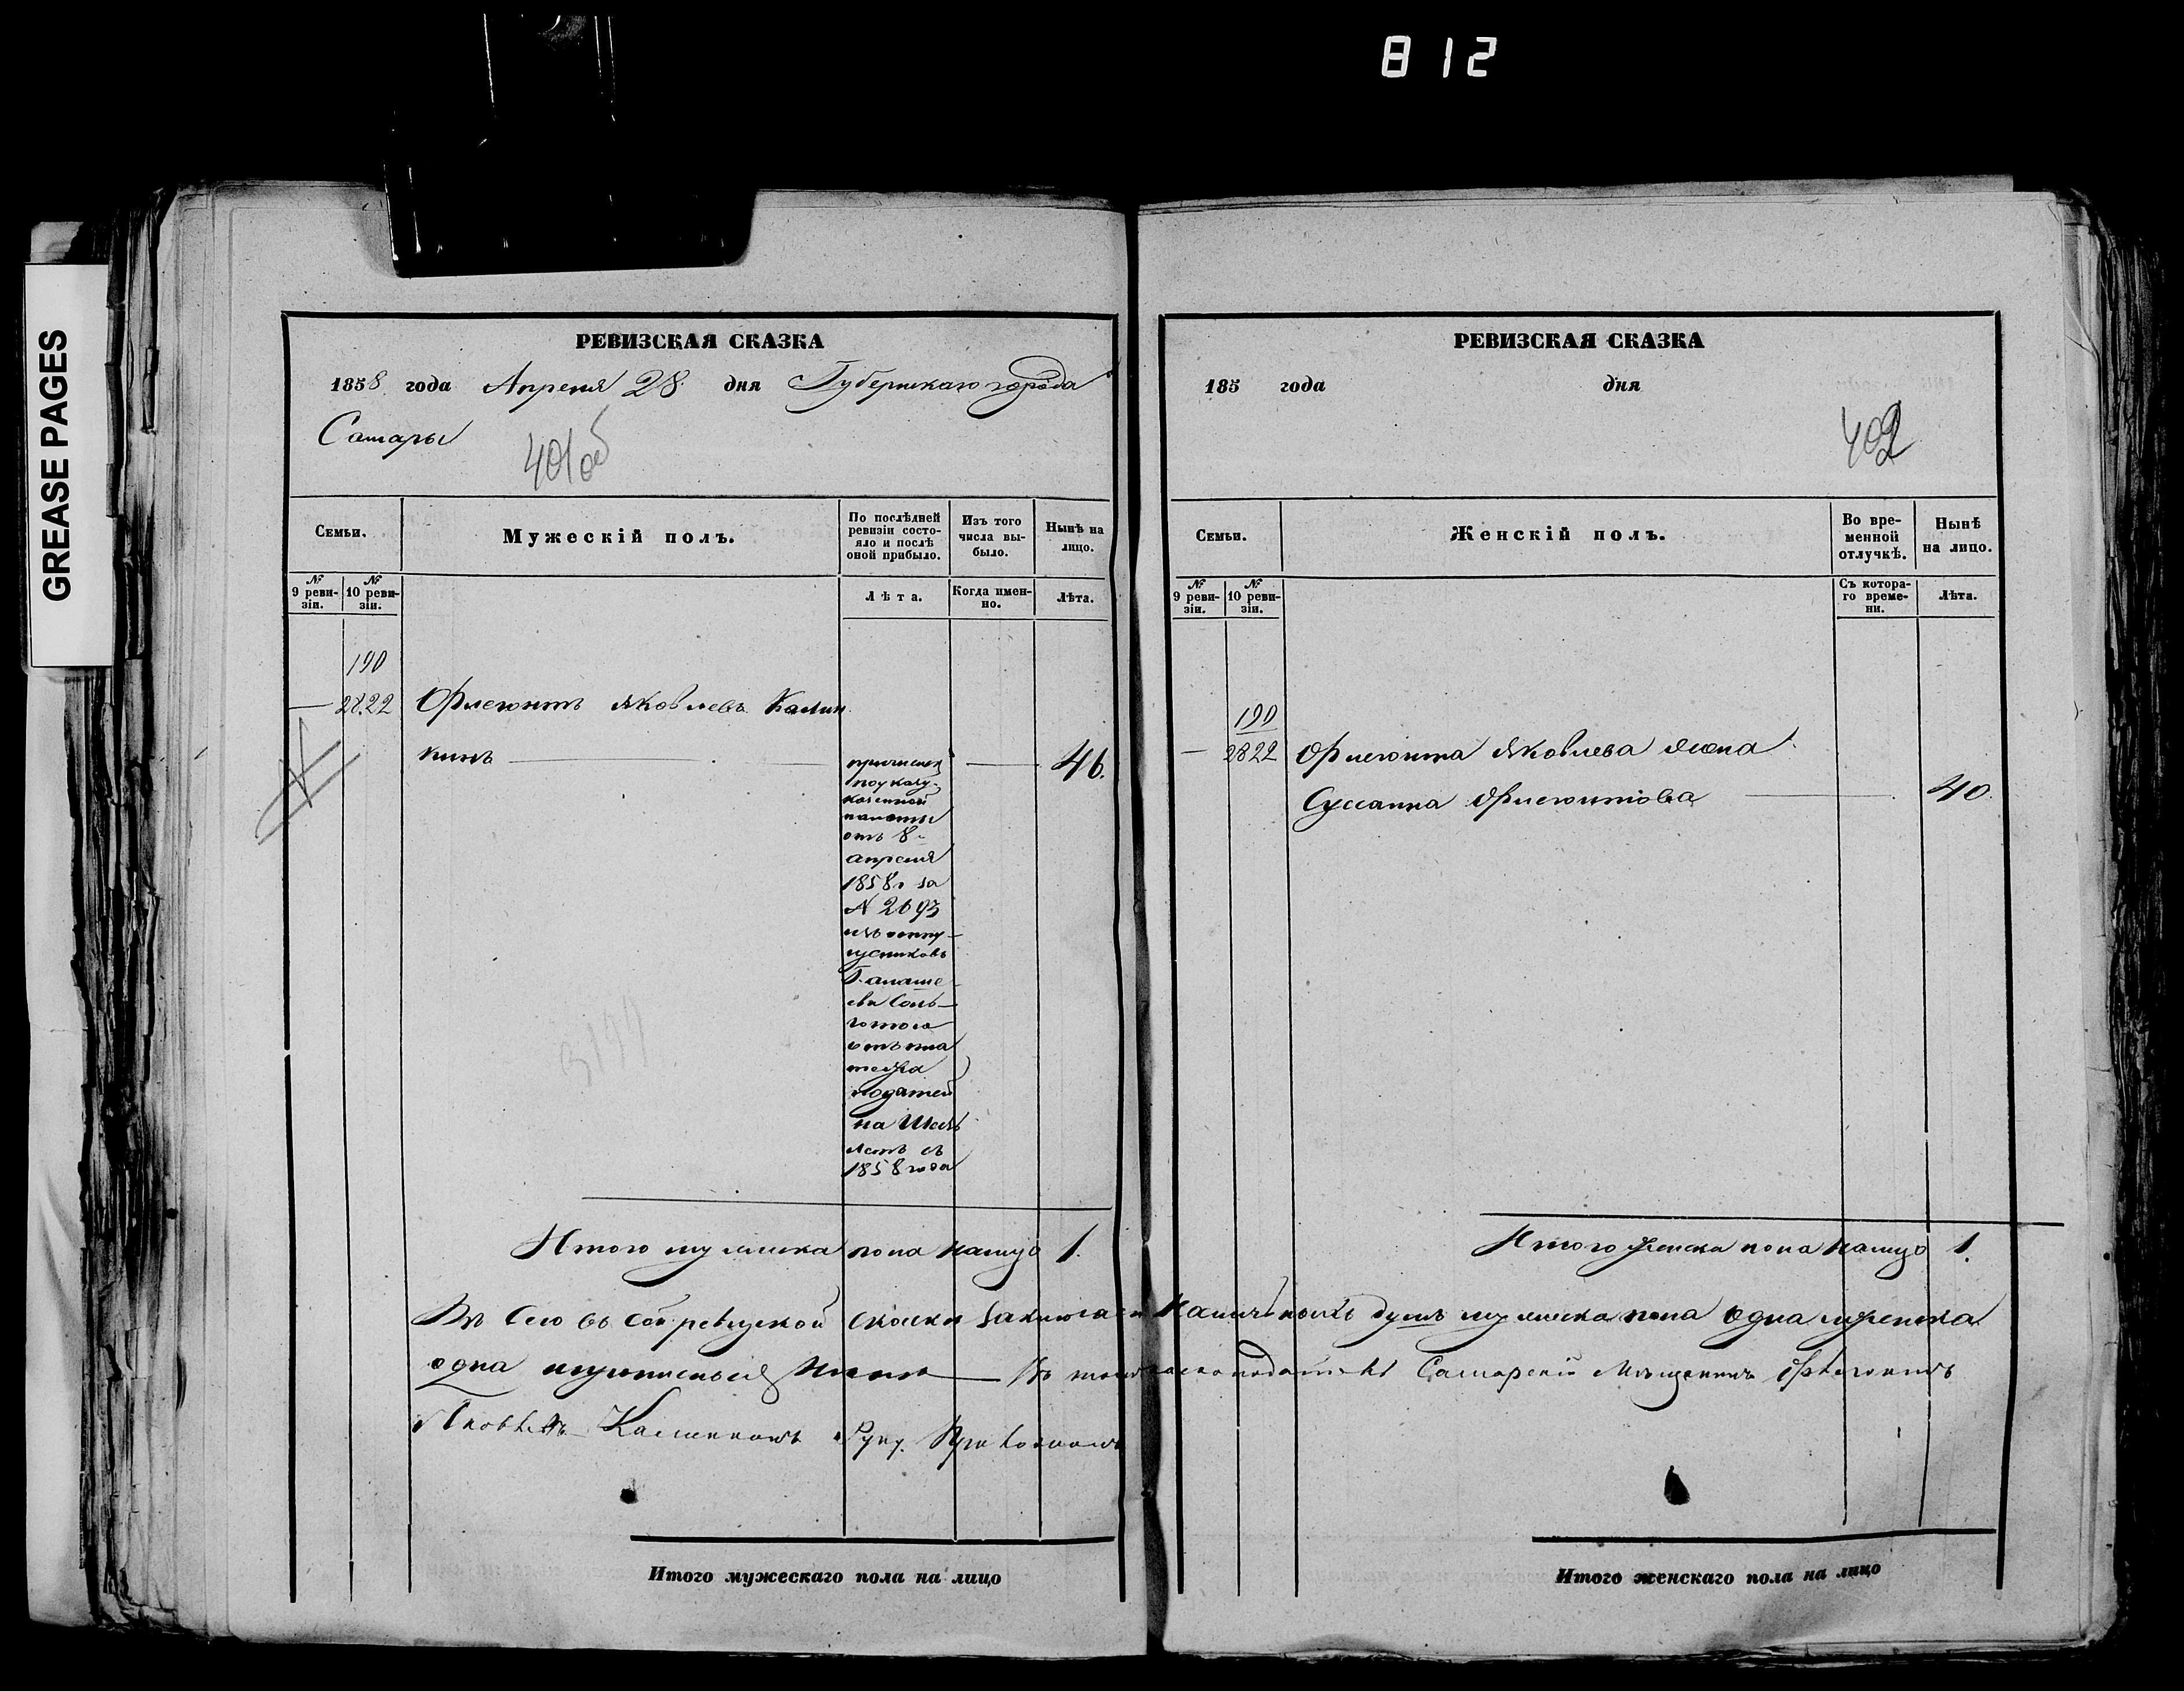 812
GREASE PAGES
РЕВИЗСКАЯ СКАЗКА
1858 года Апреля 28 дня Губернскаго города
Самары
401об
Семьи.
Мужескій полъ.
По послѣдней ревизіи состояло и послѣ оной прибыло.
Изъ того числа выбыло.
Нынѣ на лицо.
№ 9 ревизіи.
№ 10 ревизіи.
Лѣта.
Когда именно.
Лѣта.
190
— 2822 Флегонтъ Яковлевъ Калин
кинъ — 46.
причислен
по указу
казенной
палаты
отъ 8
апреля
1858 г за
N 2693
изъ отпу-
щениковъ
съ
льготою
отъ пла
тежа
податей
на Шесть
летъ съ
1858 года
Итого мужеска пола налицо 1.
РЕВИЗСКАЯ СКАЗКА
185 года дня
402
Семьи.
Женскій полъ.
Во временной отлучкѣ.
Нынѣ на лицо.
№ 9 ревизіи.
№ 10 ревизіи.
Съ котораго времени.
Лѣта.
190
— 2822 Флегонта Яковлева жена
Сусанна Флегонтова — 40.
Итого женска пола налицо 1.
сей ревизской скаски наличныхъ душъ мужеска пола одна и женска
одна — Въ томъ Самарскій Мѣщанинъ Флегонтъ
Яковлевъ Калинкинъ Руку Приложилъ
Итого мужескаго пола на лицо
Итого женскаго пола на лицо